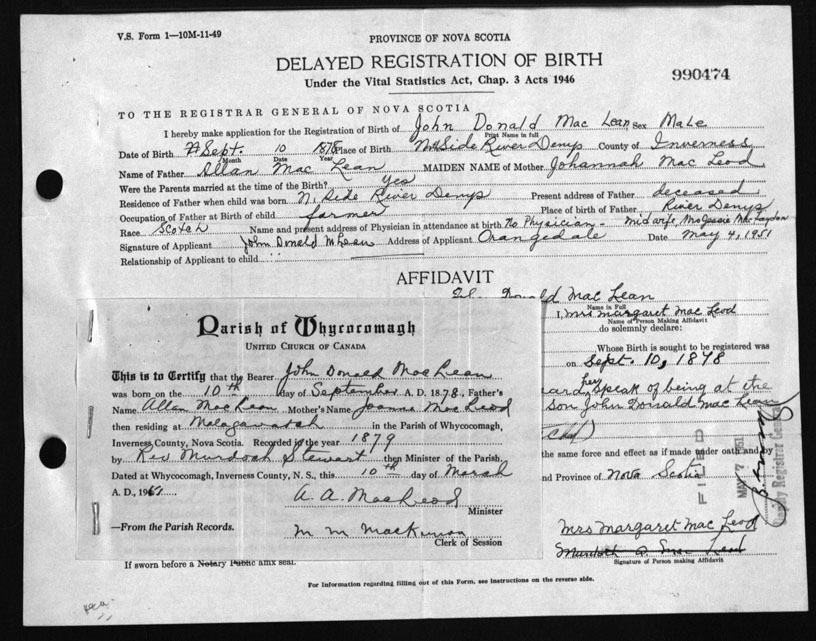 V.S. Form 1—10M-11-49
PROVINCE OF NOVA SCOTIA
DELAYED REGISTRATION OF BIRTH
Under the Vital Statistics Act, Chap. 3 Acts 1946
990474
TO THE REGISTRAR GENERAL OF NOVA SCOTIA
I hereby make application for the Registration of Birth of John Donald Mac Lean Sex Male
Print Name in full
Date of Birth Sept. 10 1878 Place of Birth N. Side River Denys County of Inverness
Month Date Year
Name of Father Allan Mac Lean MAIDEN NAME of Mother Johannah Mac Leod
Were the Parents married at the time of the Birth? Yes
Residence of Father when child was born N. Side River Denys Present address of Father deceased
Occupation of Father at Birth of child farmer Place of birth of Father River Denys
Race Scotch Name and present address of Physician in attendance at birth No Physician - midwife, Mrs Jessie
Signature of Applicant John Donald McLean Address of Applicant Orangedale Date May 4, 1951
Relationship of Applicant to child
AFFIDAVIT
Donald Mac Lean
Name in Full
I, Mrs Margaret Mac Leod
Name of Person Making Affidavit
do solemnly declare:
Whose Birth is sought to be registered was
on Sept. 10, 1878
speak of being at the
son John Donald Mac Lean
the same force and effect as if made under oath and by
nd Province of Nova Scotia
FILED
MAY 7 1951
Deputy Registrar General
Mrs Margaret Mac Leod
Murdoch D. Mac Leod
Signature of Person making Affidavit
Parish of Whycocomagh
UNITED CHURCH OF CANADA
This is to Certify that the Bearer John Donald MacLean
was born on the 10th day of September A. D. 1878, Father's
Name Allan MacLean Mother's Name Joanna MacLeod
then residing at Malagawatch in the Parish of Whycocomagh,
Inverness County, Nova Scotia. Recorded in the year 1879
by Rev Murdoch Stewart then Minister of the Parish.
Dated at Whycocomagh, Inverness County, N. S., this 10th day of March
A. D., 19
A. A. MacLeod
Minister
—From the Parish Records.
M M MacKinnon
Clerk of Session
If sworn before a Notary Public affix seal.
For Information regarding filling out of this Form, see instructions on the reverse side.